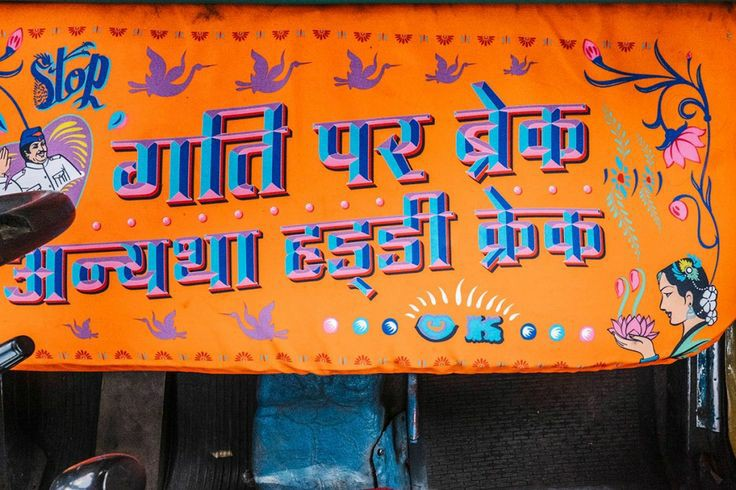 Stop
गति पर ब्रेक
अन्यथा हड्डी क्रेक
OK